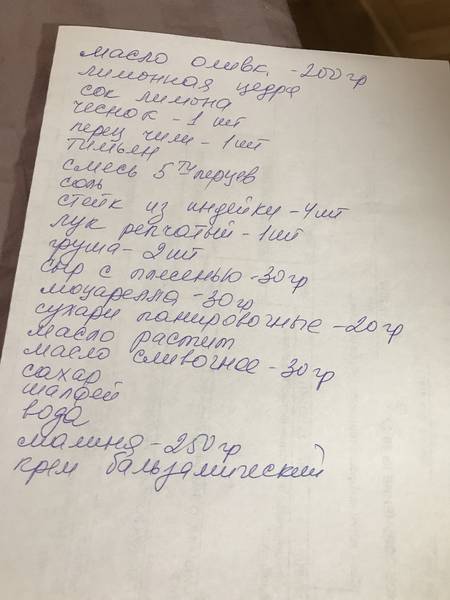 масло оливк. -200гр
лимонная цедра
сок лимона
чеснок - 1 шт
перец чили - 1шт
тимьян
смесь 5ти перцев
соль
стейк из индейки - 4шт
лук репчатый - 1шт
груша - 2шт
сыр с плесенью -30гр
моцарелла -30гр
сухари панировочные -20гр
масло растит
масло сливочное -30гр
сахар
шалфей
вода
малина - 250гр
крем бальзамический